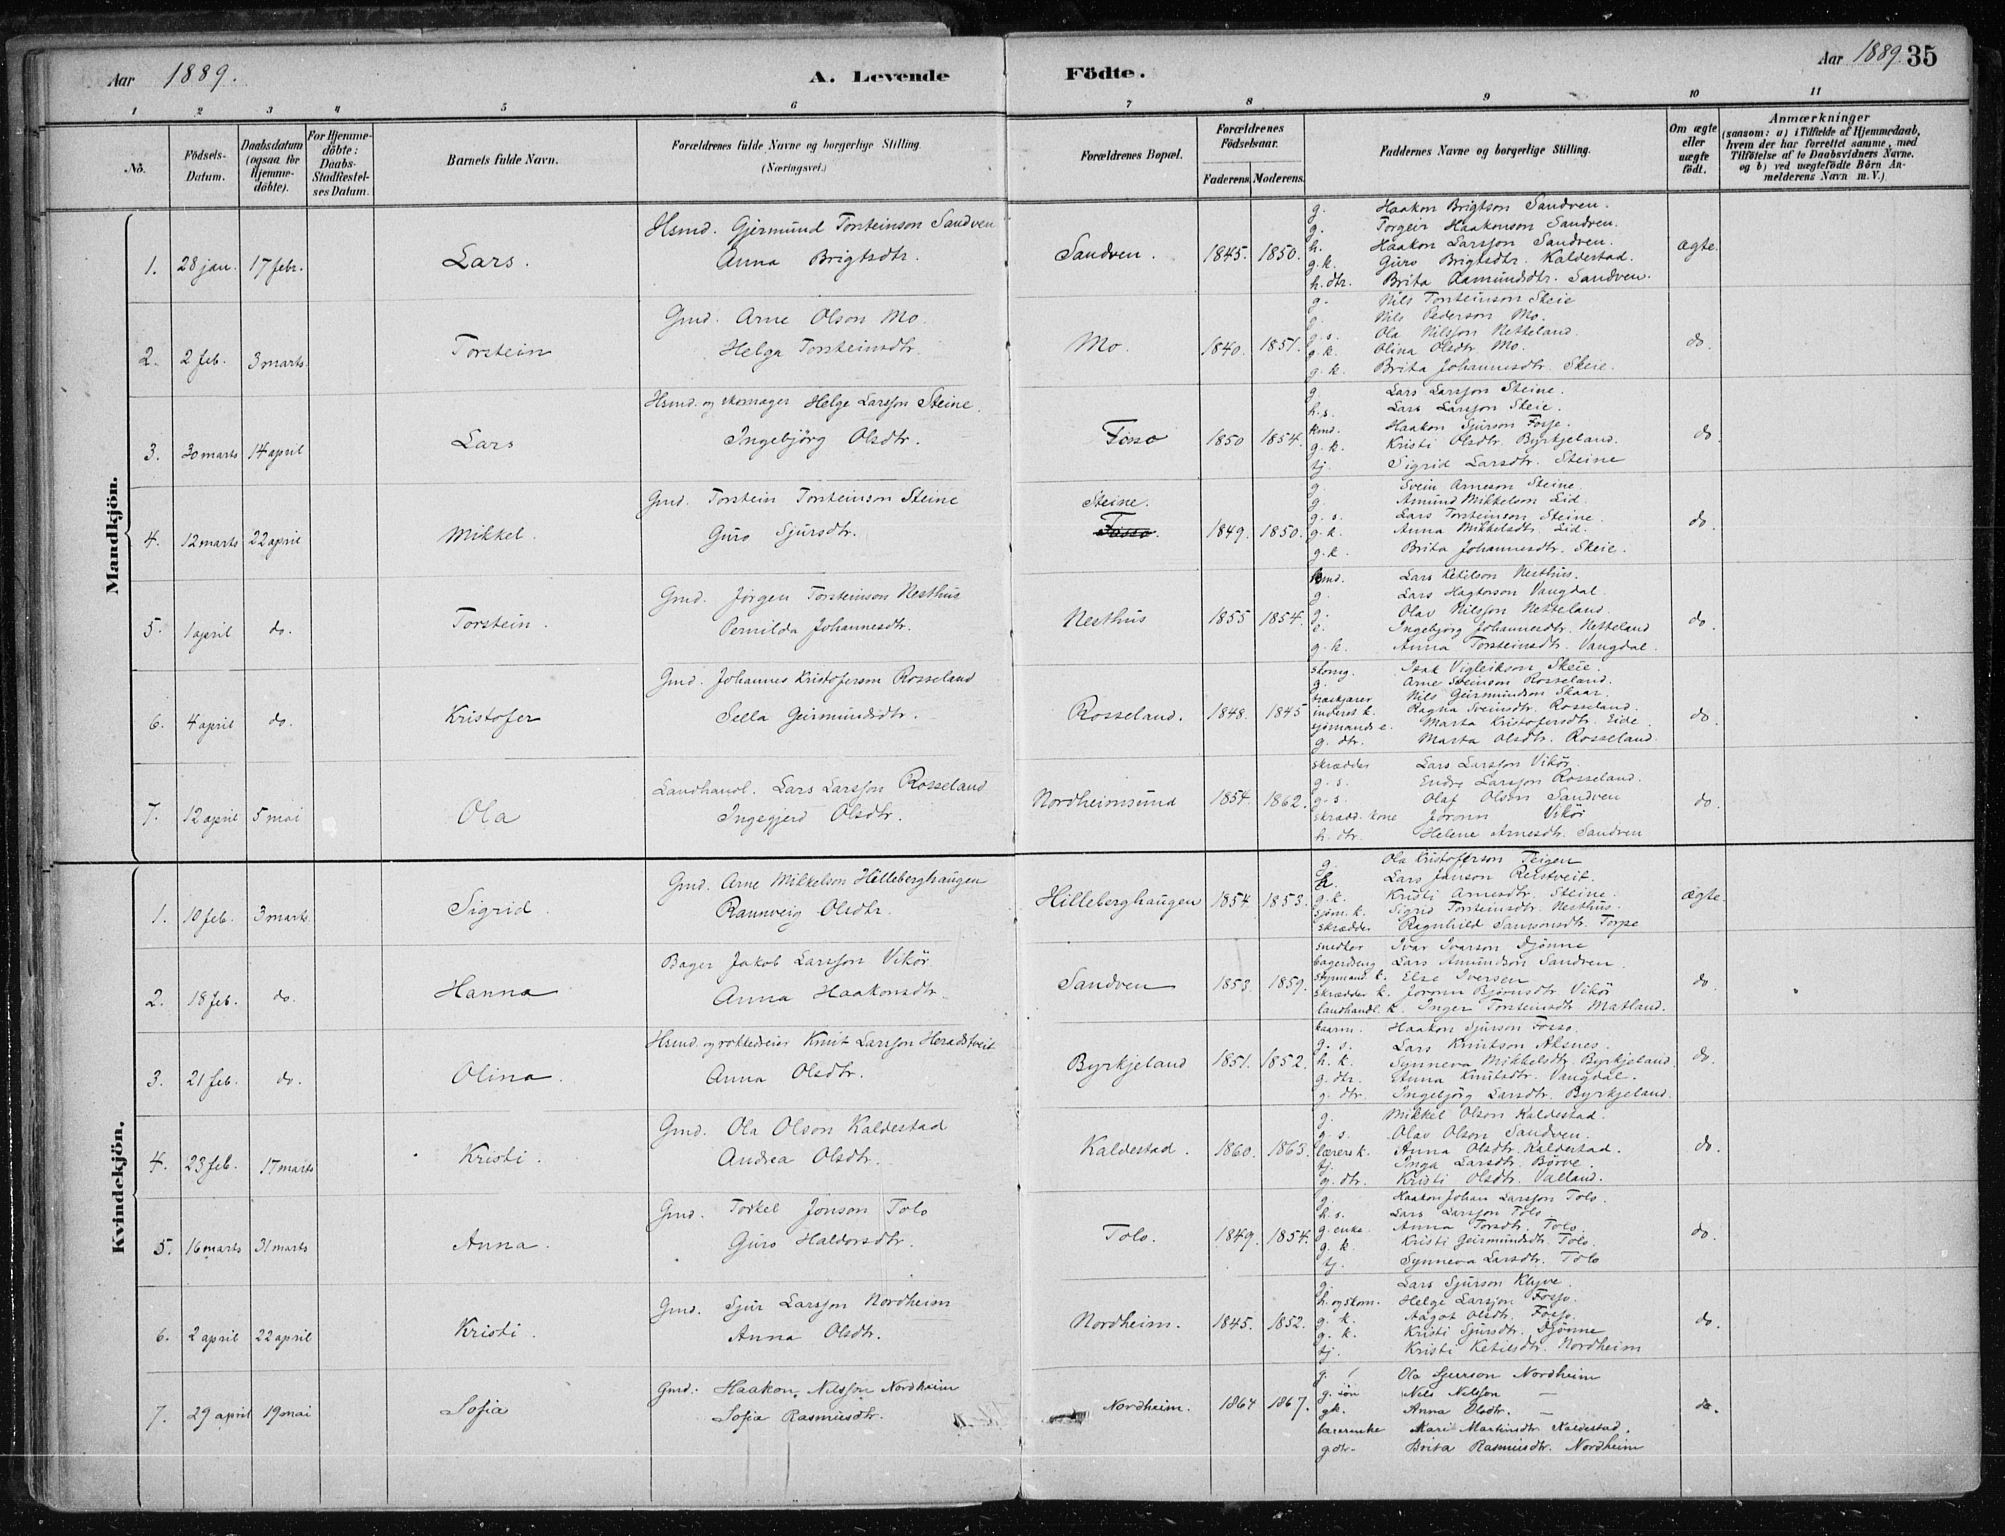 Aar 1889. A. Levende Födte. Aar 1889. 35
1 2 3 4 5 6 7 8 9 10 11
No.
Födsels-Datum.
Daabsdatum (ogsaa for Hjemmedöbte).
For Hjemmedöbte: Daabs-Stadfæstelses Datum.
Barnets fulde Navn.
Forældrenes fulde Navne og borgerlige Stilling. (Næringsvei.)
Forældrenes Bopæl.
Forældrenes Födselsaar. Faderens. Moderens.
Faddernes Navne og borgerlige Stilling.
Om ægte eller uægte født.
Anmærkninger
(saasom: a) i Tilfælde af Hjemmedaab, hvem der har forrettet samme, med Tilföielse af to Daabsvidners Navne. og b) ved uægtefödte Börn Anmelderens Navn m. V.)
Mandkjön.
1. 28 jan. 17 febr. Lars.
Hsmd. Gjermund Torsteinson Sandven
Anna Brigtsdtr.
Sandven. 1845. 1850.
g. Haakon Brigtson Sandven.
g. Torgeir Haakonson Sandven.
h. Haakon Larsson Sandven.
g. k. Guro Brigtsdtr. Kaldestad.
h. dtr. Brita Aamundsdtr. Sandven.
ægte.
2. 2 feb. 3 marts. Torstein
Gmd. Arne Olson Mo.
Helga Torsteinsdtr.
Mo. 1840. 1851.
g. Nils Torsteinson Skeie
g. Nils Pederson Mo.
g. s. Ola Nilsson Netteland.
g. k. Olina Olsdtr. Mo.
g. k. Brita Johannesdtr. Skeie.
do.
3. 30 marts 14 april Lars
Hsmd. og skomager Helge Larsson Steine.
Ingebjörg Olsdtr.
Fosso 1850 1854.
g Lars Larsson Steine.
h. s. Lars Larsson Skeie.
kmd. Haakon Sjurson Fosse.
g. k. Kristi Olsdtr. Byrkjeland.
tj. Sigrid Larsdtr. Steine
do.
4. 12 marts 22 april Mikkel.
Gmd. Torstein Torsteinson Steine
Guro Sjursdtr.
Steine.
Fosso. 1849. 1850.
g. Svein Arneson Steine.
g. Amund Mikkelson Eid.
g. s. Lars Torsteinson Steine.
g. k. Anna Mikkelsdtr. Eid.
g. k. Brita Johannesdtr. Skeie.
do.
5. 1 april do. Torstein.
Gmd. Jörgen Torsteinson Nesthus
Pernilda Johannesdtr.
Nesthus 1855 1854.
Lars Ketilson Nesthus.
g. Lars Hagtorson Vangdal.
g. Olav Nilsson Netteland.
e. Ingebjörg Johannesdtr. Netteland
g. k. Anna Torsteinsdtr. Vangdal.
do.
6. 4 april do. Kristofer
Gmd. Johannes Kristoferson Rosseland
Sella Geirmundsdtr.
Rosseland. 1848. 1845
Isak Vigleikson Skeie.
g. Arne Sveinson Rosseland.
Nils Geirmundson Skaar.
inderst k. Ragna Sveinsdtr. Rosseland.
sjömands e. Marta Kristofersdtr. Eide.
g. dtr. Marta Olsdtr. Rosseland.
do.
7. 12 april 5 mai Ola
Landhandl. Lars Larsson Rosseland
Ingegjerd Olsdtr.
Nordheimsund 1854. 1862.
skrædder Lars Larsson Vikör.
g. s. Endre Larsson Rosseland.
g. s. Olaf Olson Sandven
skrædd. kone Joronn Vikör
h. dtr. Helene Arnesdtr. Sandven
do.
Kvindekjön.
1. 10 feb. 3 marts. Sigrid.
Gmd. Arne Mikkelson Hilleberghaugen
Rannveig Olsdtr.
Hilleberghaugen 1854. 1853.
g. Ola Kristoferson Teigen
h. Lars Janson Reistveit.
g. k. Kristi Arnesdtr. Steine.
sjöm. k. Sigrid Torsteinsdtr. Nesthus.
skrædder Ragnhild Samsonsdtr. Torpe
ægte.
2. 18 feb. do. Hanna
Bager Jakob Larsson Vikör
Anna Haakonsdtr.
Sandven 1853. 1859.
snedker Ivar Ivarson Djönne
bagerdreng Lars Amundson Sandven.
styrmand k. Else Iversen
skrædder k. Joronn Björnsdtr. Vikör
landhandl. k. Inger Torsteinsdtr Matland.
do.
3. 21 feb. do. Olina.
Hsmd. og rokkedreier Knut Larsson Heradstveit
Anna Olsdtr.
Byrkjeland 1851. 1852.
kaarm. Haakon Sjurson Fosso.
g. s. Lars Knutson Aksnes.
h. k. Synneva Mikkelsdtr. Byrkjeland.
g. dtr. Anna Knutsdtr. Vangdal.
g. dtr Ingebjörg Larsdtr. Byrkjeland.
do.
4. 23 feb. 17 marts Kristi.
Gmd. Ola Olson Kaldestad
Andrea Olsdtr.
Kaldestad. 1860. 1863.
g. Mikkel Olson Kaldestad.
g. s. Olav Olson Sandven.
lærers k. Anna Olsdtr. Kaldestad.
tj. Inga Larsdtr. Börve.
g. dtr. Kristi Olsdtr. Valland.
do.
5. 16 marts 31 marts Anna.
Gmd. Torkel Jonson Tolo
Guro Haldorsdtr.
Tolo. 1849. 1854.
g. Haakon Johan Larsson Tolo.
h. s. Lars Larsson Tolo.
g. enke. Anna Torsdtr. Tolo.
g. k. Kristi Geirmundsdtr. Tolo.
tj. Synneva Larsdtr. Tolo
do.
6. 2 april 22 april Kristi.
Gmd. Sjur Larsson Nordheim
Anna Olsdtr.
Nordheim. 1845. 1852.
g. Lars Sjurson Klyve.
h. og skom. Helge Larsson Fosso.
g. k. Aagot Olsdtr. Fosso.
g. k. Kristi Sjursdtr. Djönne
tj. Kristi Ketilsdtr. Nordheim
do.
7. 29 april 19 mai Sofia
Gmd. Haakon Nilsson Nordheim
Sofia Rasmusdtr.
Nordheim. 1864 1867.
g. Ola Sjurson Nordheim
g. søn Nils Nilsson —
gk. Anna Olsdtr. —
Mari Martinsdtr Kaldestad.
g dtr. Brita Rasmusdtr. Nordheim
do.